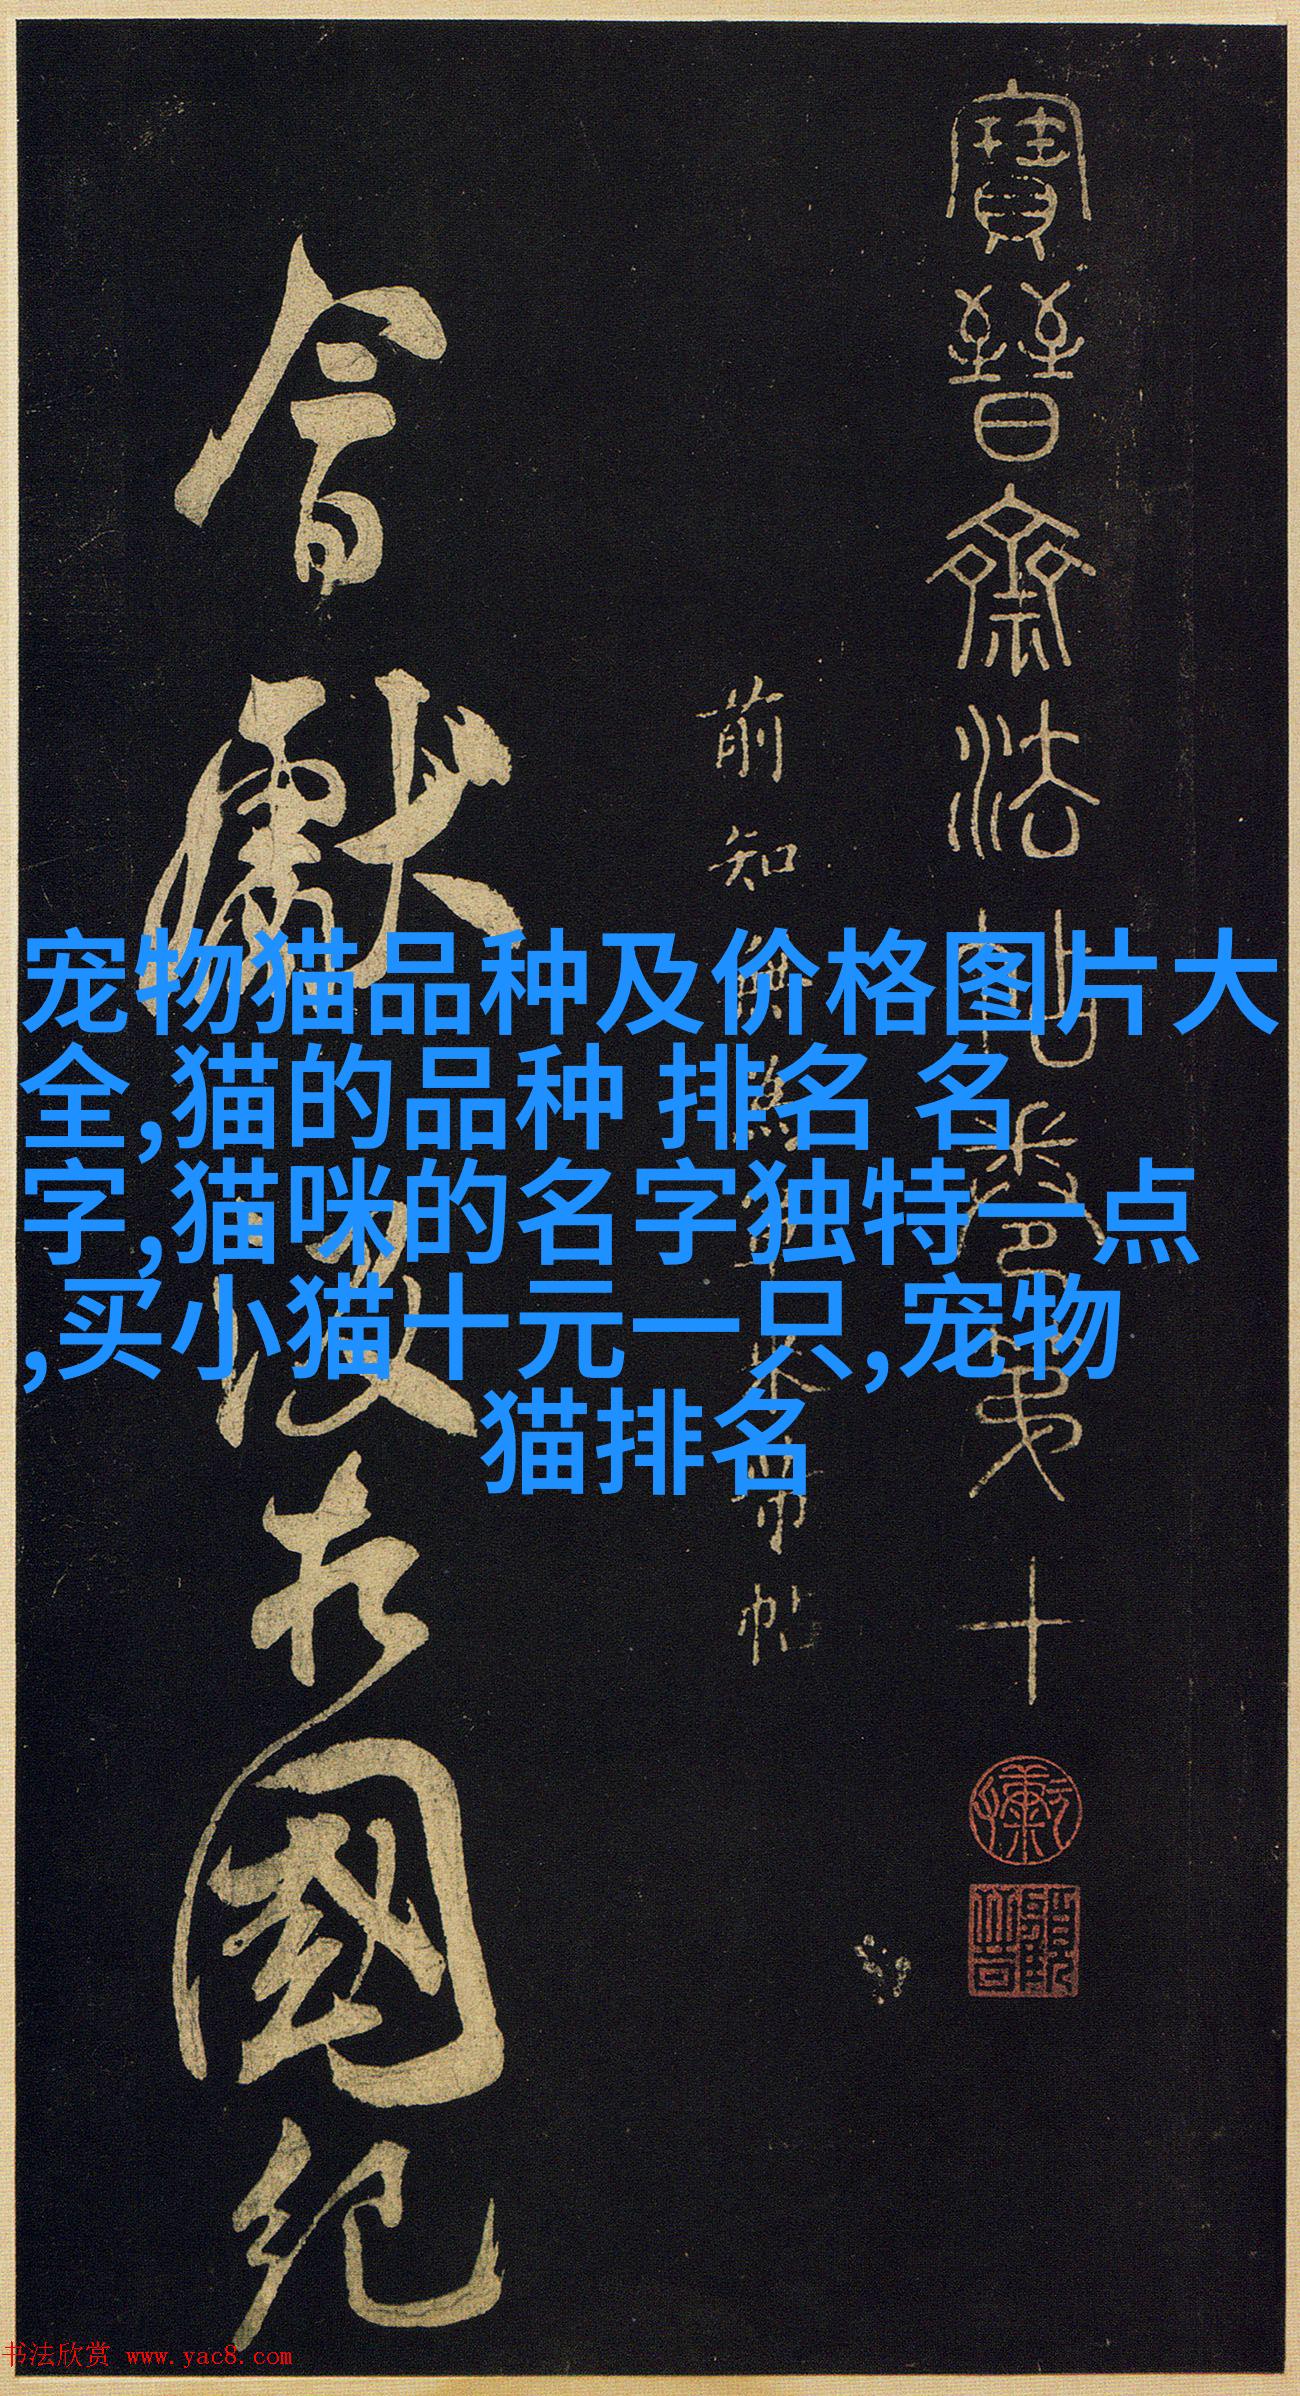 寶晉齋法帖卷第十
前知無為軍米芾帖
宠物猫品种及价格图片大
全,猫的品种 排名 名
字,猫咪的名字独特一点
,买小猫十元一只,宠物
猫排名
國紀
书法欣赏 www.yac8.com